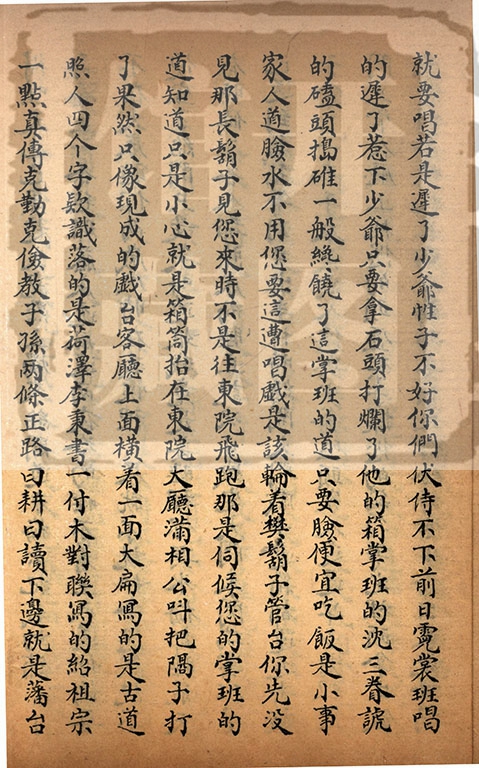 就要唱若是遲了少爺性子不好你們伏侍不下前日霓裳班唱
的遲了惹下少爺只要拿石頭打爛了他的箱掌班的沈三眷諕
的磕頭搗碓一般終饒了這掌班的道只要臉便宜吃飯是小事
家人道臉水不用您要這遭唱戲是該輪着樊鬍子管台你先没
見那長鬍子見您來時不是往東院飛跑那是伺候您的掌班的
道知道只是小心就是箱筒抬在東院大廳滿相公叫把隔子打
了果然只像現成的戲台客廳上面橫着一面大扁寫的是古道
照人四个字欵識落的是荷澤李秉書一付木對聯寫的紹祖宗
一點真傳克勤克儉教子孫两條正路曰耕曰讀下邊就是藩台